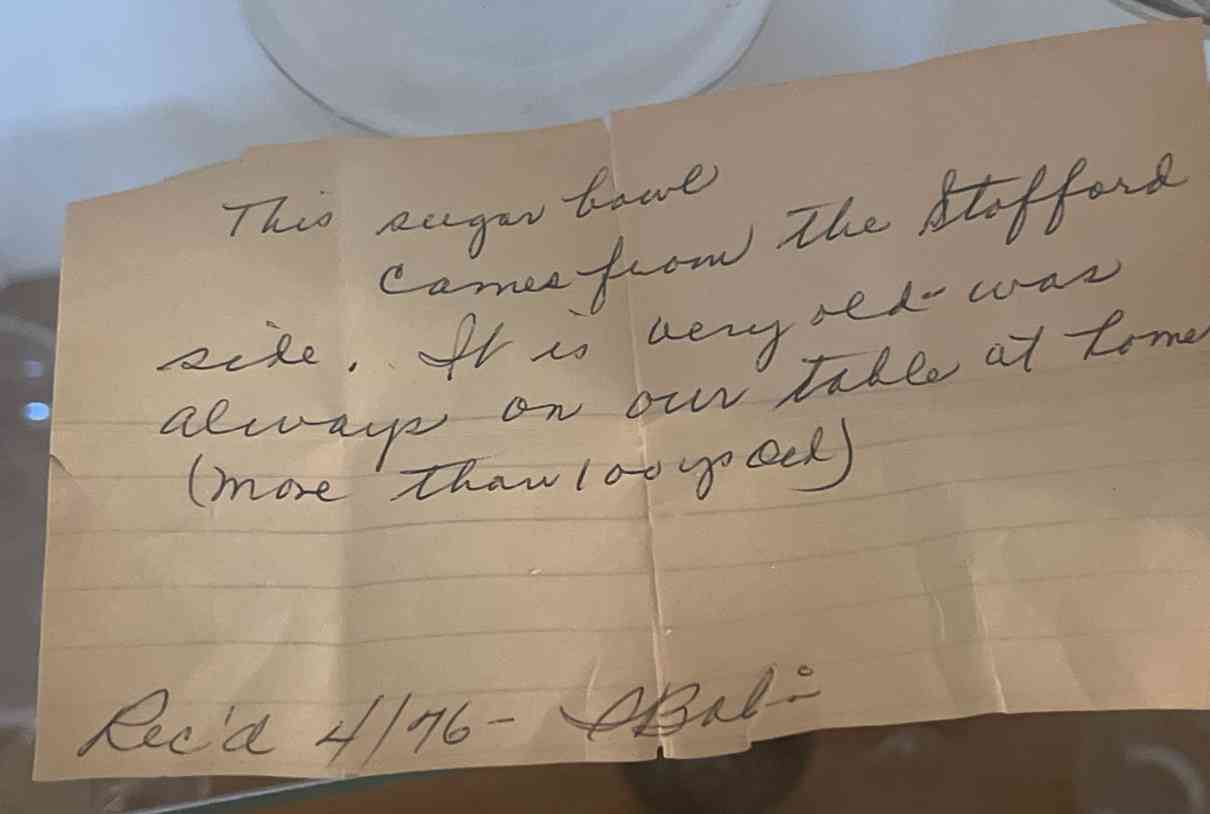 This sugar bowl
comes from the Stafford
side. It is very old - was
always on our table at home
(more than 100 yrs old)
Rec'd 4/76 -